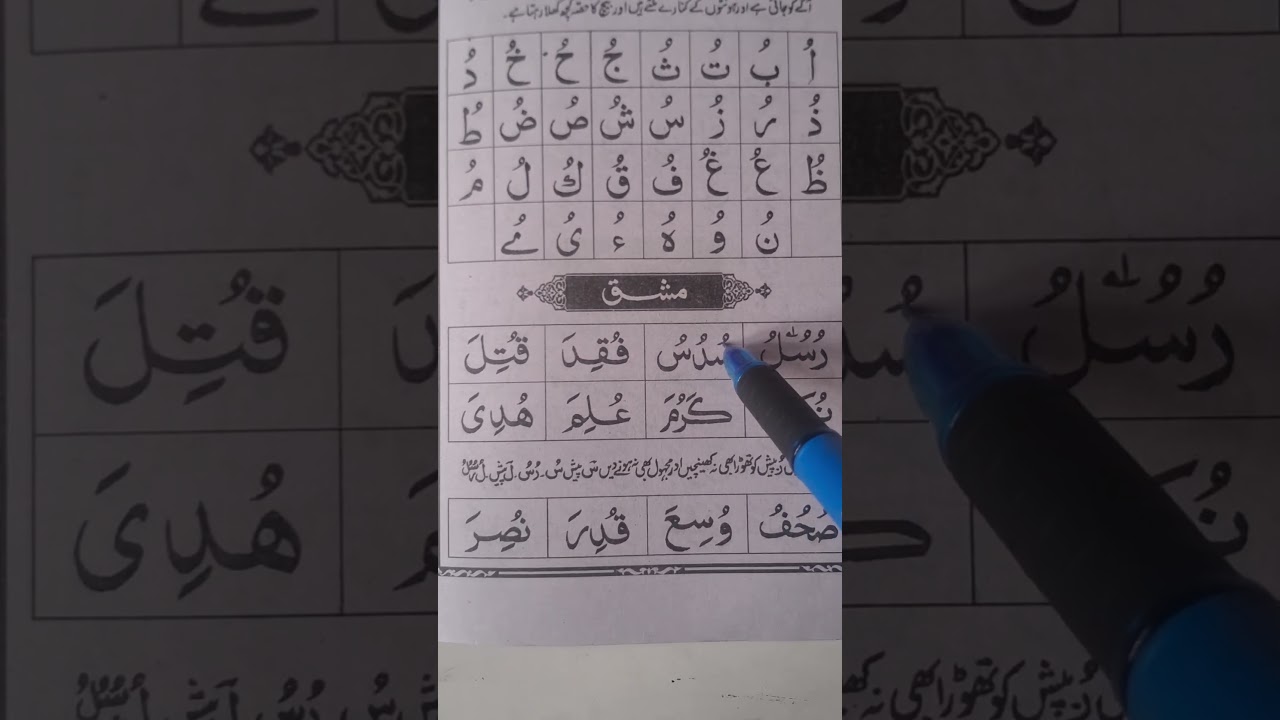 آگے کو جاتی ہے اور ہونٹوں کے کنارے ملتے ہیں اور بیچ کا حصّہ کچھ کھلا رہتا ہے۔
اُ بُ تُ ثُ جُ حُ خُ دُ
ذُ رُ زُ سُ شُ صُ ضُ طُ
ظُ عُ غُ فُ قُ كُ لُ مُ
نُ وُ هُ ءُ یُ ےُ
مشق
رُسُلُ سُدُسُ فُقِدَ قُتِلَ
كَرُمَ عُلِمَ هُدِیَ
پیش کو تھوڑا بھی نہ کھینچیں اور مجہول بھی نہ ہونے دیں سٓ پیش سُ۔ دُسُ۔ لٓ پیش۔ لُ رُسُلُ
صُحُفُ وُسِعَ قُدِرَ نُصِرَ